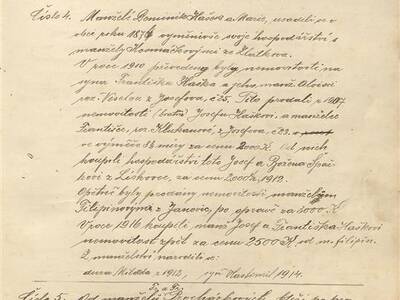 Číslo 4. Manželé Dominik Hašek a Marie, usadili se v
obci roku 1874 vyměnivše, svoje hospodářství s
manžely Hromáčkovými ze Zlatkova.
V roce 1910 převedeny byly nemovitosti na
syna Františka Haška a jeho manž. Aloisii
roz. Veselou z Josefova, č. 25. Tito prodali r. 1907
nemovitosti (bratru) Josefu Haškovi a manželce
Františce, roz. Kluskanové, z Josefova, č. 23. v
ve výměře 33 míry za cenu 2000 K. Od nich
koupili hospodářství toto Josef a Božena Špač-
kovi z Liškovce, za cenu 2000 K, 1912.
Opětně byly prodány nemovitosti manželům
Filipinovým z Janovic, po opravě za 3000 K.
V roce 1916 koupili, manž. Josef a Františka Haškovi
nemovitost zpět za cenu 2500 K. od m. Filipin.
Z manželství narodili se:
dcera Milada r. 1912, syn Vlastimil 1914.
Číslo 5. Od manželů